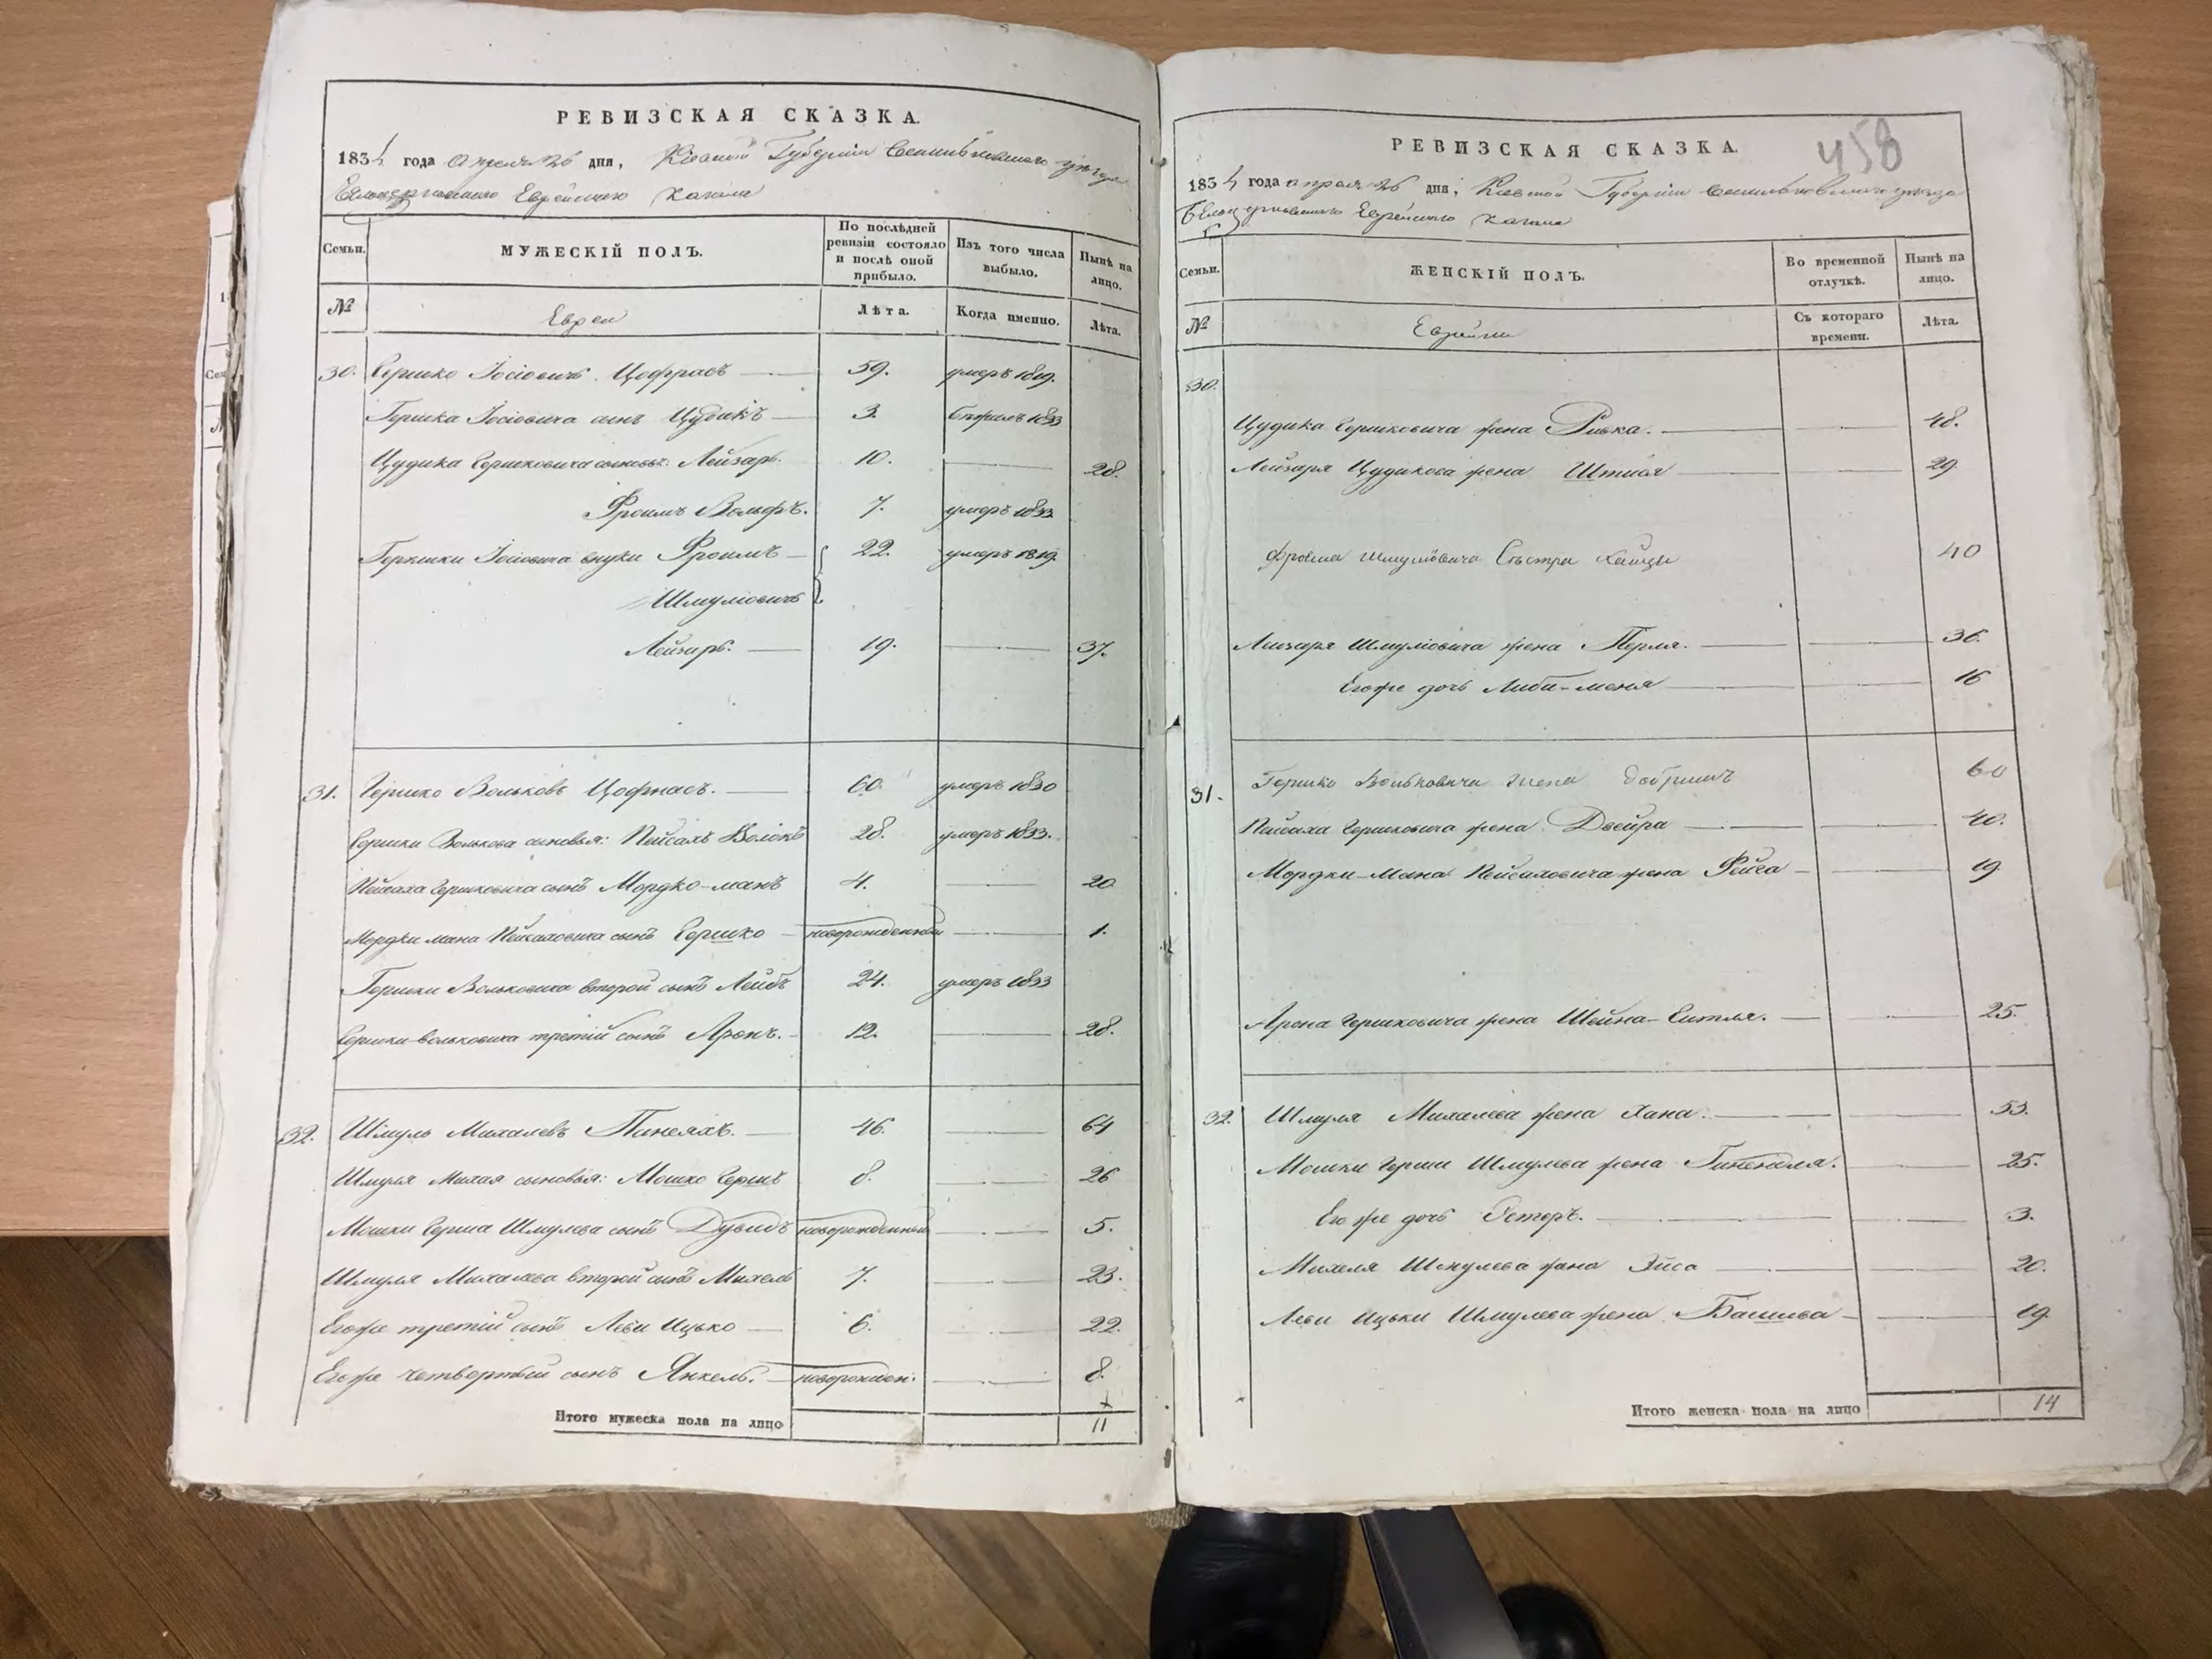 РЕВИЗСКАЯ СКАЗКА.
1834 года апреля 26 дня, Кіевской Губерніи Васильковскаго уѣзда
Бѣлоцерковскаго Еврейскаго Кагала
Семьи.
МУЖЕСКІЙ ПОЛЪ.
По послѣдней ревизіи состояло и послѣ оной прибыло.
Изъ того числа выбыло.
Нынѣ на лицо.
№
Евреи
Лѣта.
Когда именно.
Лѣта.
30. Гершко Іосіовичъ Цофнасъ 59. умеръ 1819.
Гершка Іосіовича сынъ Цудикъ 3. бѣжалъ 1833
Цудика Гершковича сыновья: Лейзаръ. 10. 28.
Фроимъ Вольфъ. 7. умеръ 1833
Гершки Іосіовича внуки Фроимъ 22. умеръ 1819.
Шмуліовичъ
Лейзаръ. 19. 37.
31. Гершко Вольковъ Цофнасъ. 60. умеръ 1830
Гершки Волькова сыновья: Пейсахъ 28. умеръ 1833.
Пейсаха Гершковича сынъ Мордко-манъ 4. 20
Мордки мана Пейсаховича сынъ Гершко новорожденный 1.
Гершки Вольковича второй сынъ Лейбъ 24. умеръ 1833
Гершки Вольковича третій сынъ Аронъ. 12. 28.
32. Шмуль Михалевъ 46. 64
Шмуля Михля сыновья: Мошко Гершъ 8. 26
Мошки Герша Шмулева сынъ Дувидъ новорожденный 5.
Шмуля Михалева второй сынъ Михель 7. 23.
Егоже третій сынъ Леви Ицько 6. 22.
Егоже четвертый сынъ Янкель. новорожден. 8.
Итого мужеска пола на лицо 11
458
РЕВИЗСКАЯ СКАЗКА.
1834 года апреля 26 дня, Кіевской Губерніи Васильковскаго уѣзда
Бѣлоцерковскаго Еврейскаго Кагала
Семьи.
ЖЕНСКІЙ ПОЛЪ.
Во временной отлучкѣ.
Нынѣ на лицо.
№
Еврейки
Съ котораго времени.
Лѣта.
30.
Цудика Гершковича жена Ривка. 48.
Лейзаря Цудикова жена 29.
Фроима Шмуліовича Сѣстра 40
Лейзаря Шмуліовича жена Перля. 36.
Егоже дочь 16
31. Гершко Вольковича жена 60
Пейсаха Гершковича жена Двейра 40.
Мордки-Мана Пейсаховича жена Фейга 19
Арона Гершковича жена Шейна-Ситля. 25.
32. Шмуля Михалева жена Хана. 53.
Мошки Герши Шмулева жена 25.
Егоже дочь Эстеръ. 3.
Михеля Шмулева жена 20.
Леви Ицьки Шмулева жена Башева 19
Итого женска пола на лицо 14